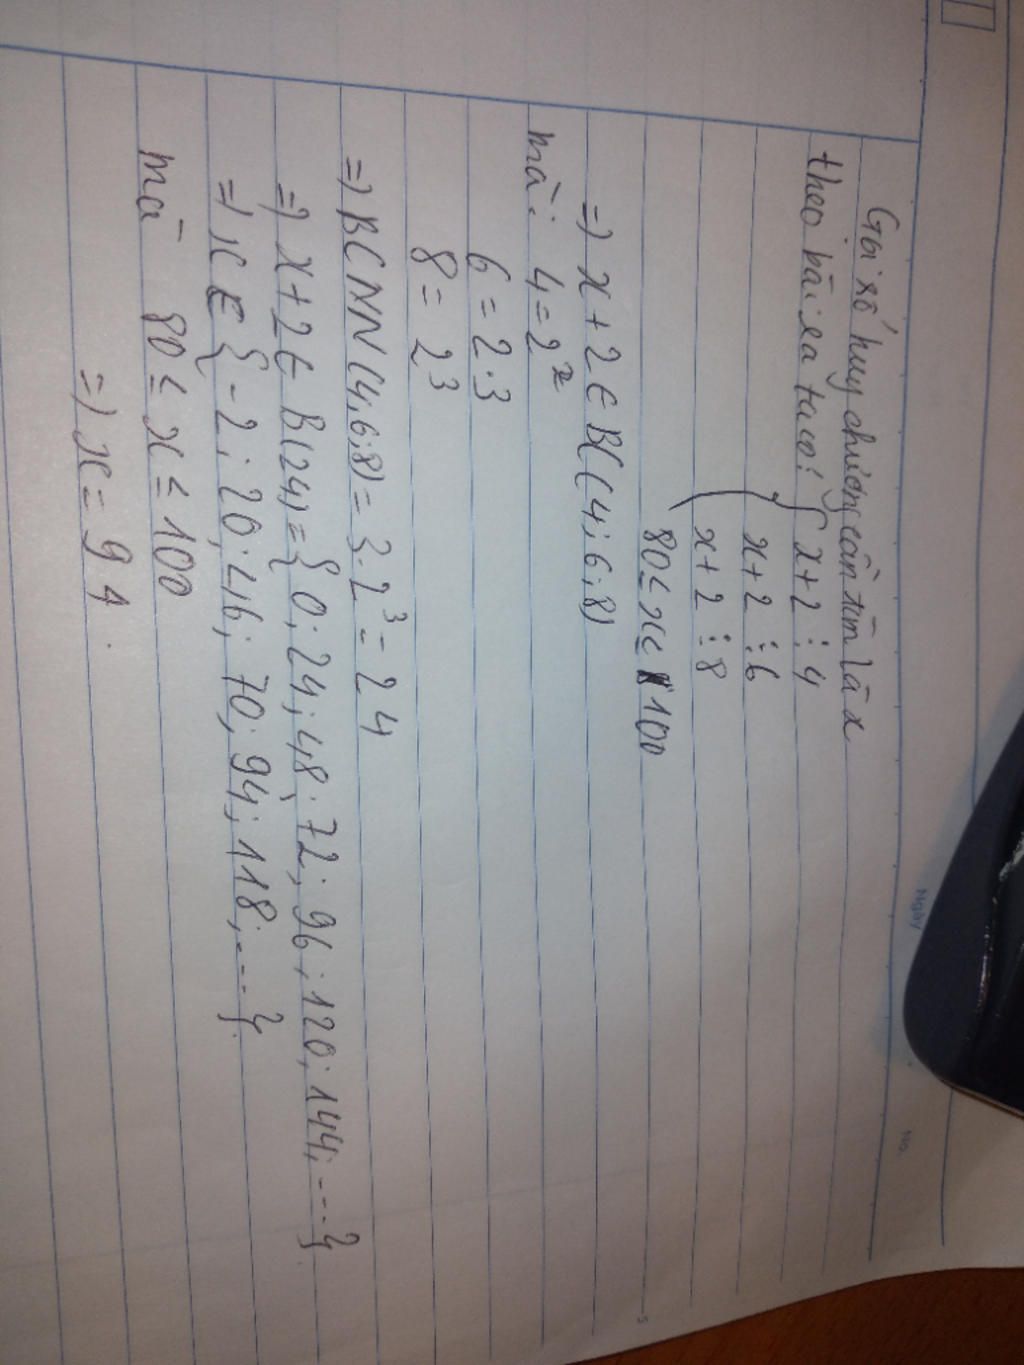 Ngày
No.
Gọi số huy chương cần tìm là x
theo bài ra ta có: { x + 2 ⋮ 4
x + 2 ⋮ 6
x + 2 ⋮ 8
80 ≤ x ≤ 100
=) x + 2 ∈ BC(4; 6; 8)
mà: 4 = 2²
6 = 2.3
8 = 2³
=) BCNN(4; 6; 8) = 3.2³ = 24
=) x + 2 ∈ B(24) = { 0; 24; 48; 72; 96; 120; 144; ...}
=) x ∈ { -2; 20; 46; 70; 94; 118; ...}
mà 80 ≤ x ≤ 100
=) x = 94.